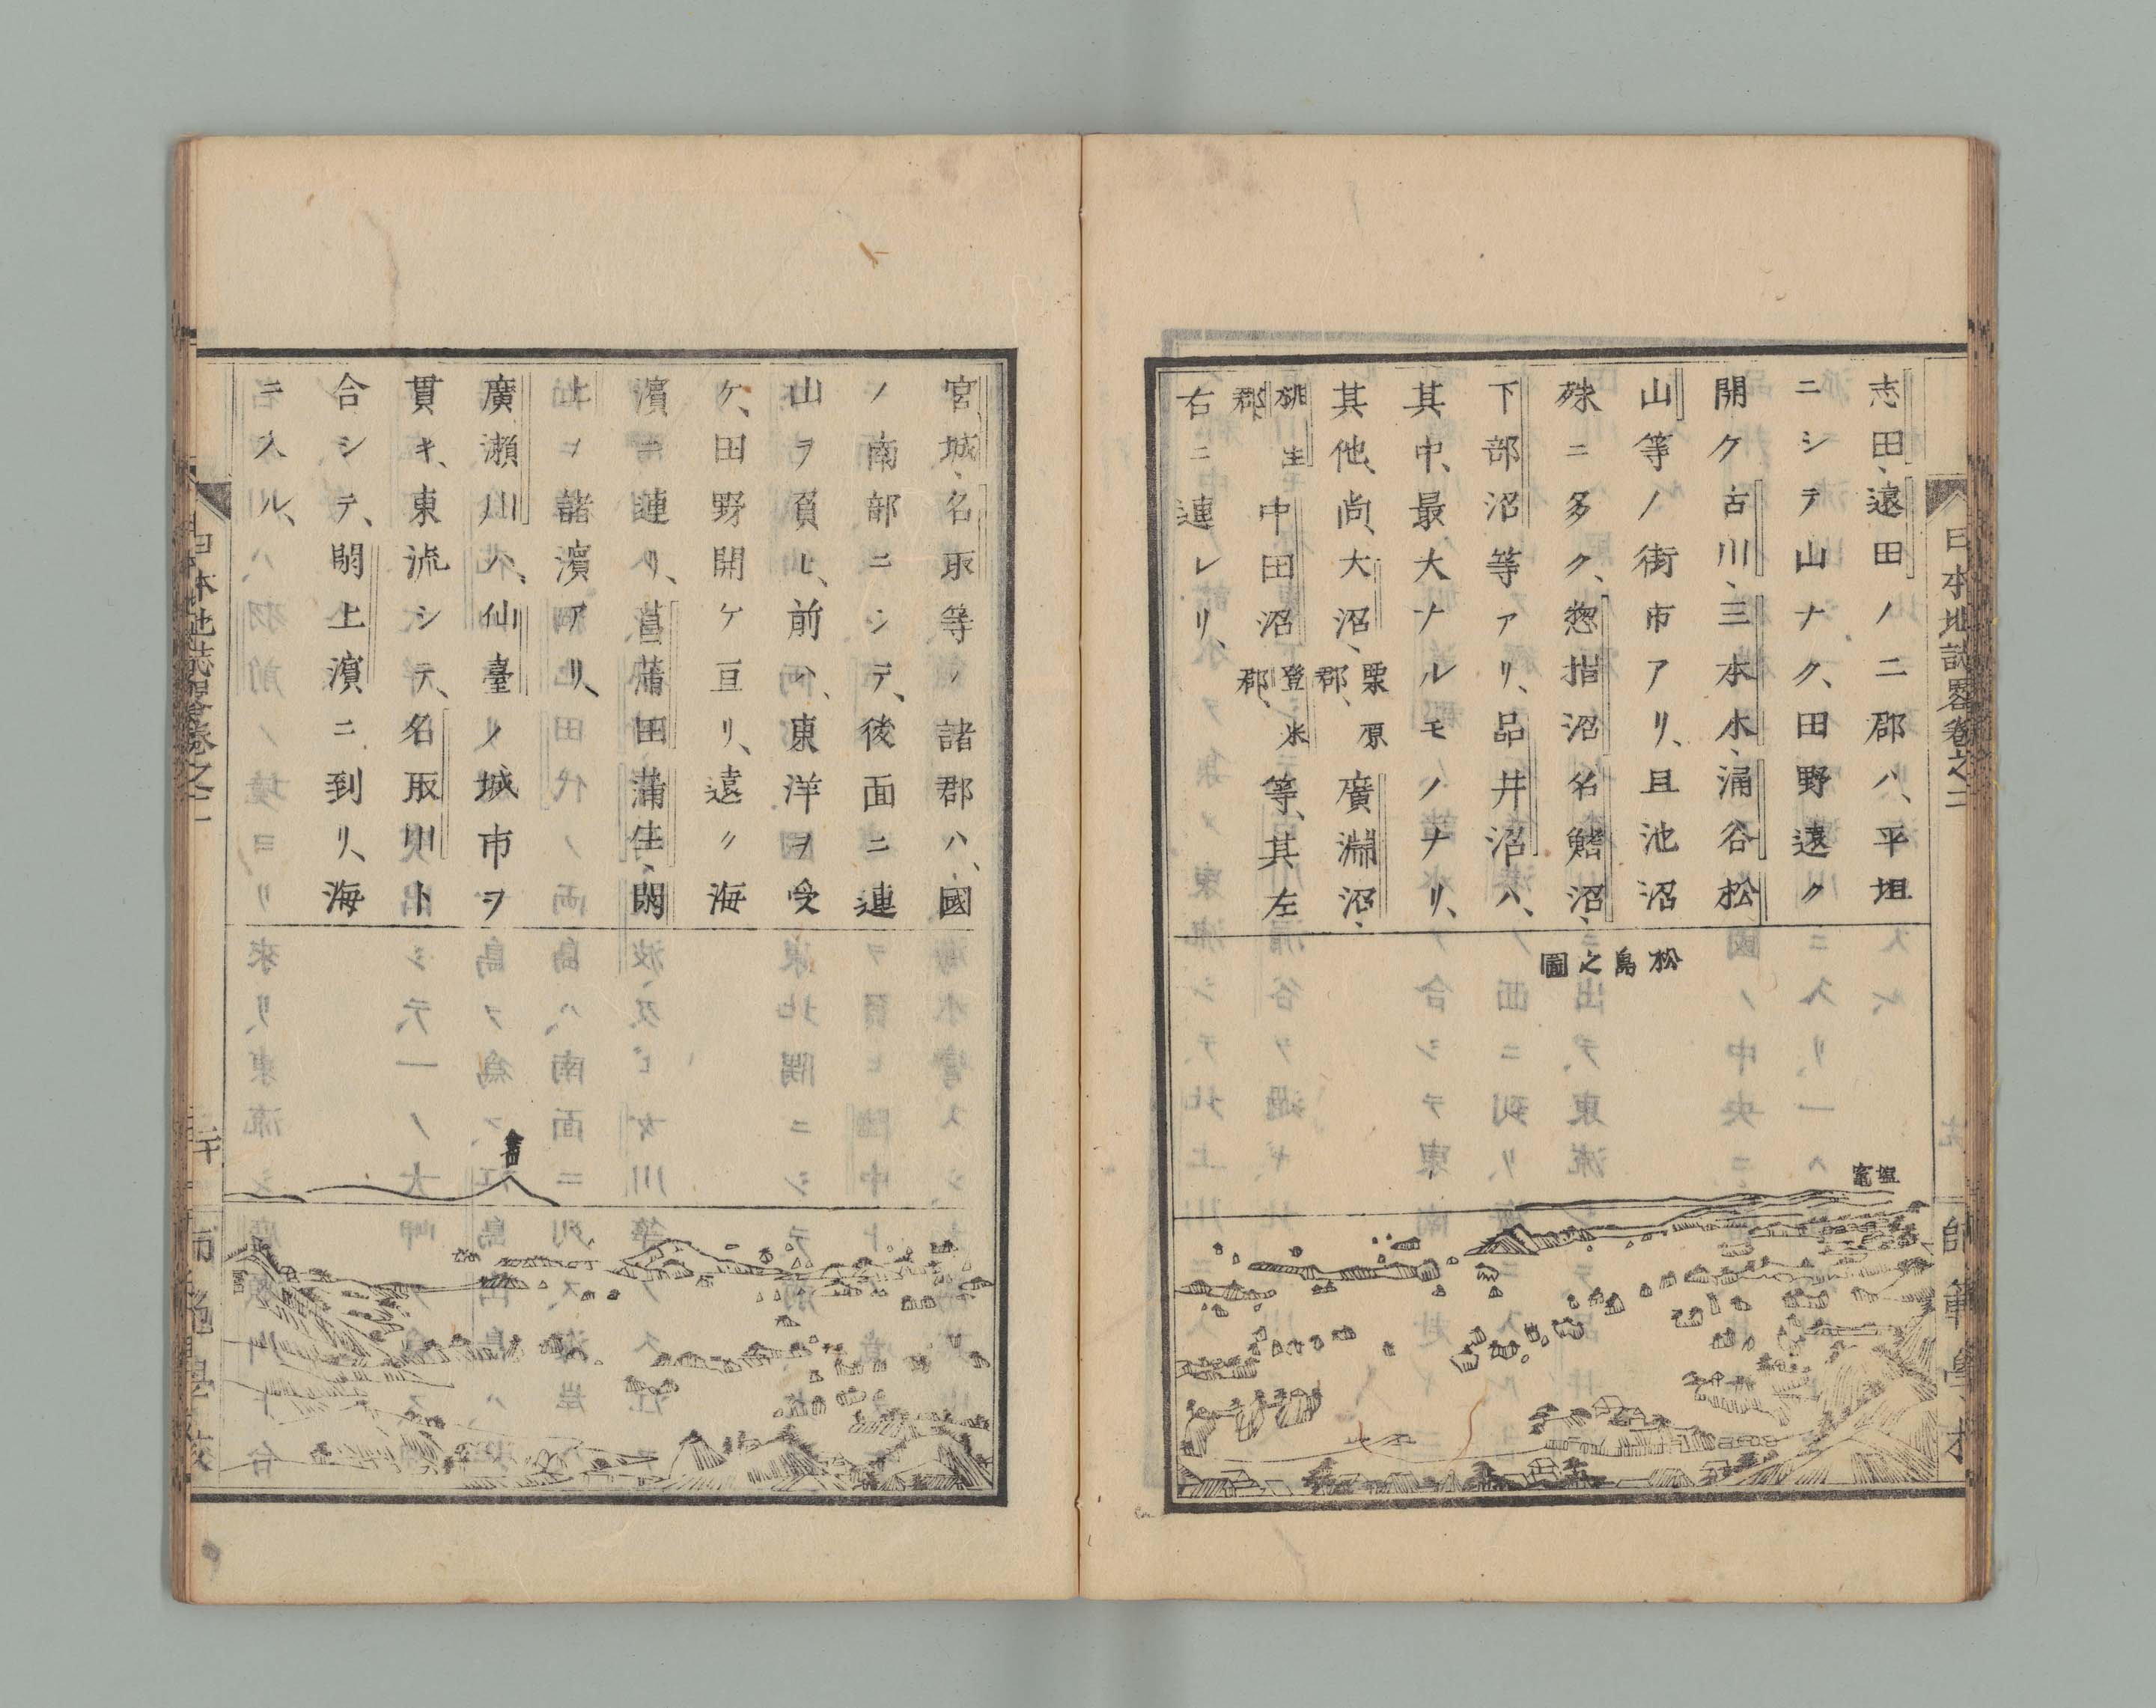 日本地誌畧卷之二
志田、遠田ノ二郡ハ、平坦
ニシテ山ナク、田野遠ク
開ク古川、三本木、涌谷松
山等ノ街市アリ、且池沼
殊ニ多ク、惣指沼名鰭沼、
下部沼等アリ、品井沼ハ、
其中、最大ナルモノナリ、
其他、尚、大沼、栗原郡、廣淵沼、
桃生郡、中田沼登米郡、等、其左
右ニ連レリ、
松島之圖
塩竈
師範學校
宮城、名取等ノ諸郡ハ、國
ノ南部ニシテ、後面ニ連
山ヲ負ヒ、前ハ、東洋ヲ受
ケ、田野開ケ亘リ、遠ク海
濱ニ連リ、菖蒲田蒲生、閖
上ノ諸濱アリ、
廣瀬川ハ、仙臺ノ城市ヲ
貫キ、東流シテ、名取川ト
合シテ、閖上濱ニ到リ、海
ニ入ル、
日本地誌畧卷之二
二十
師範學校